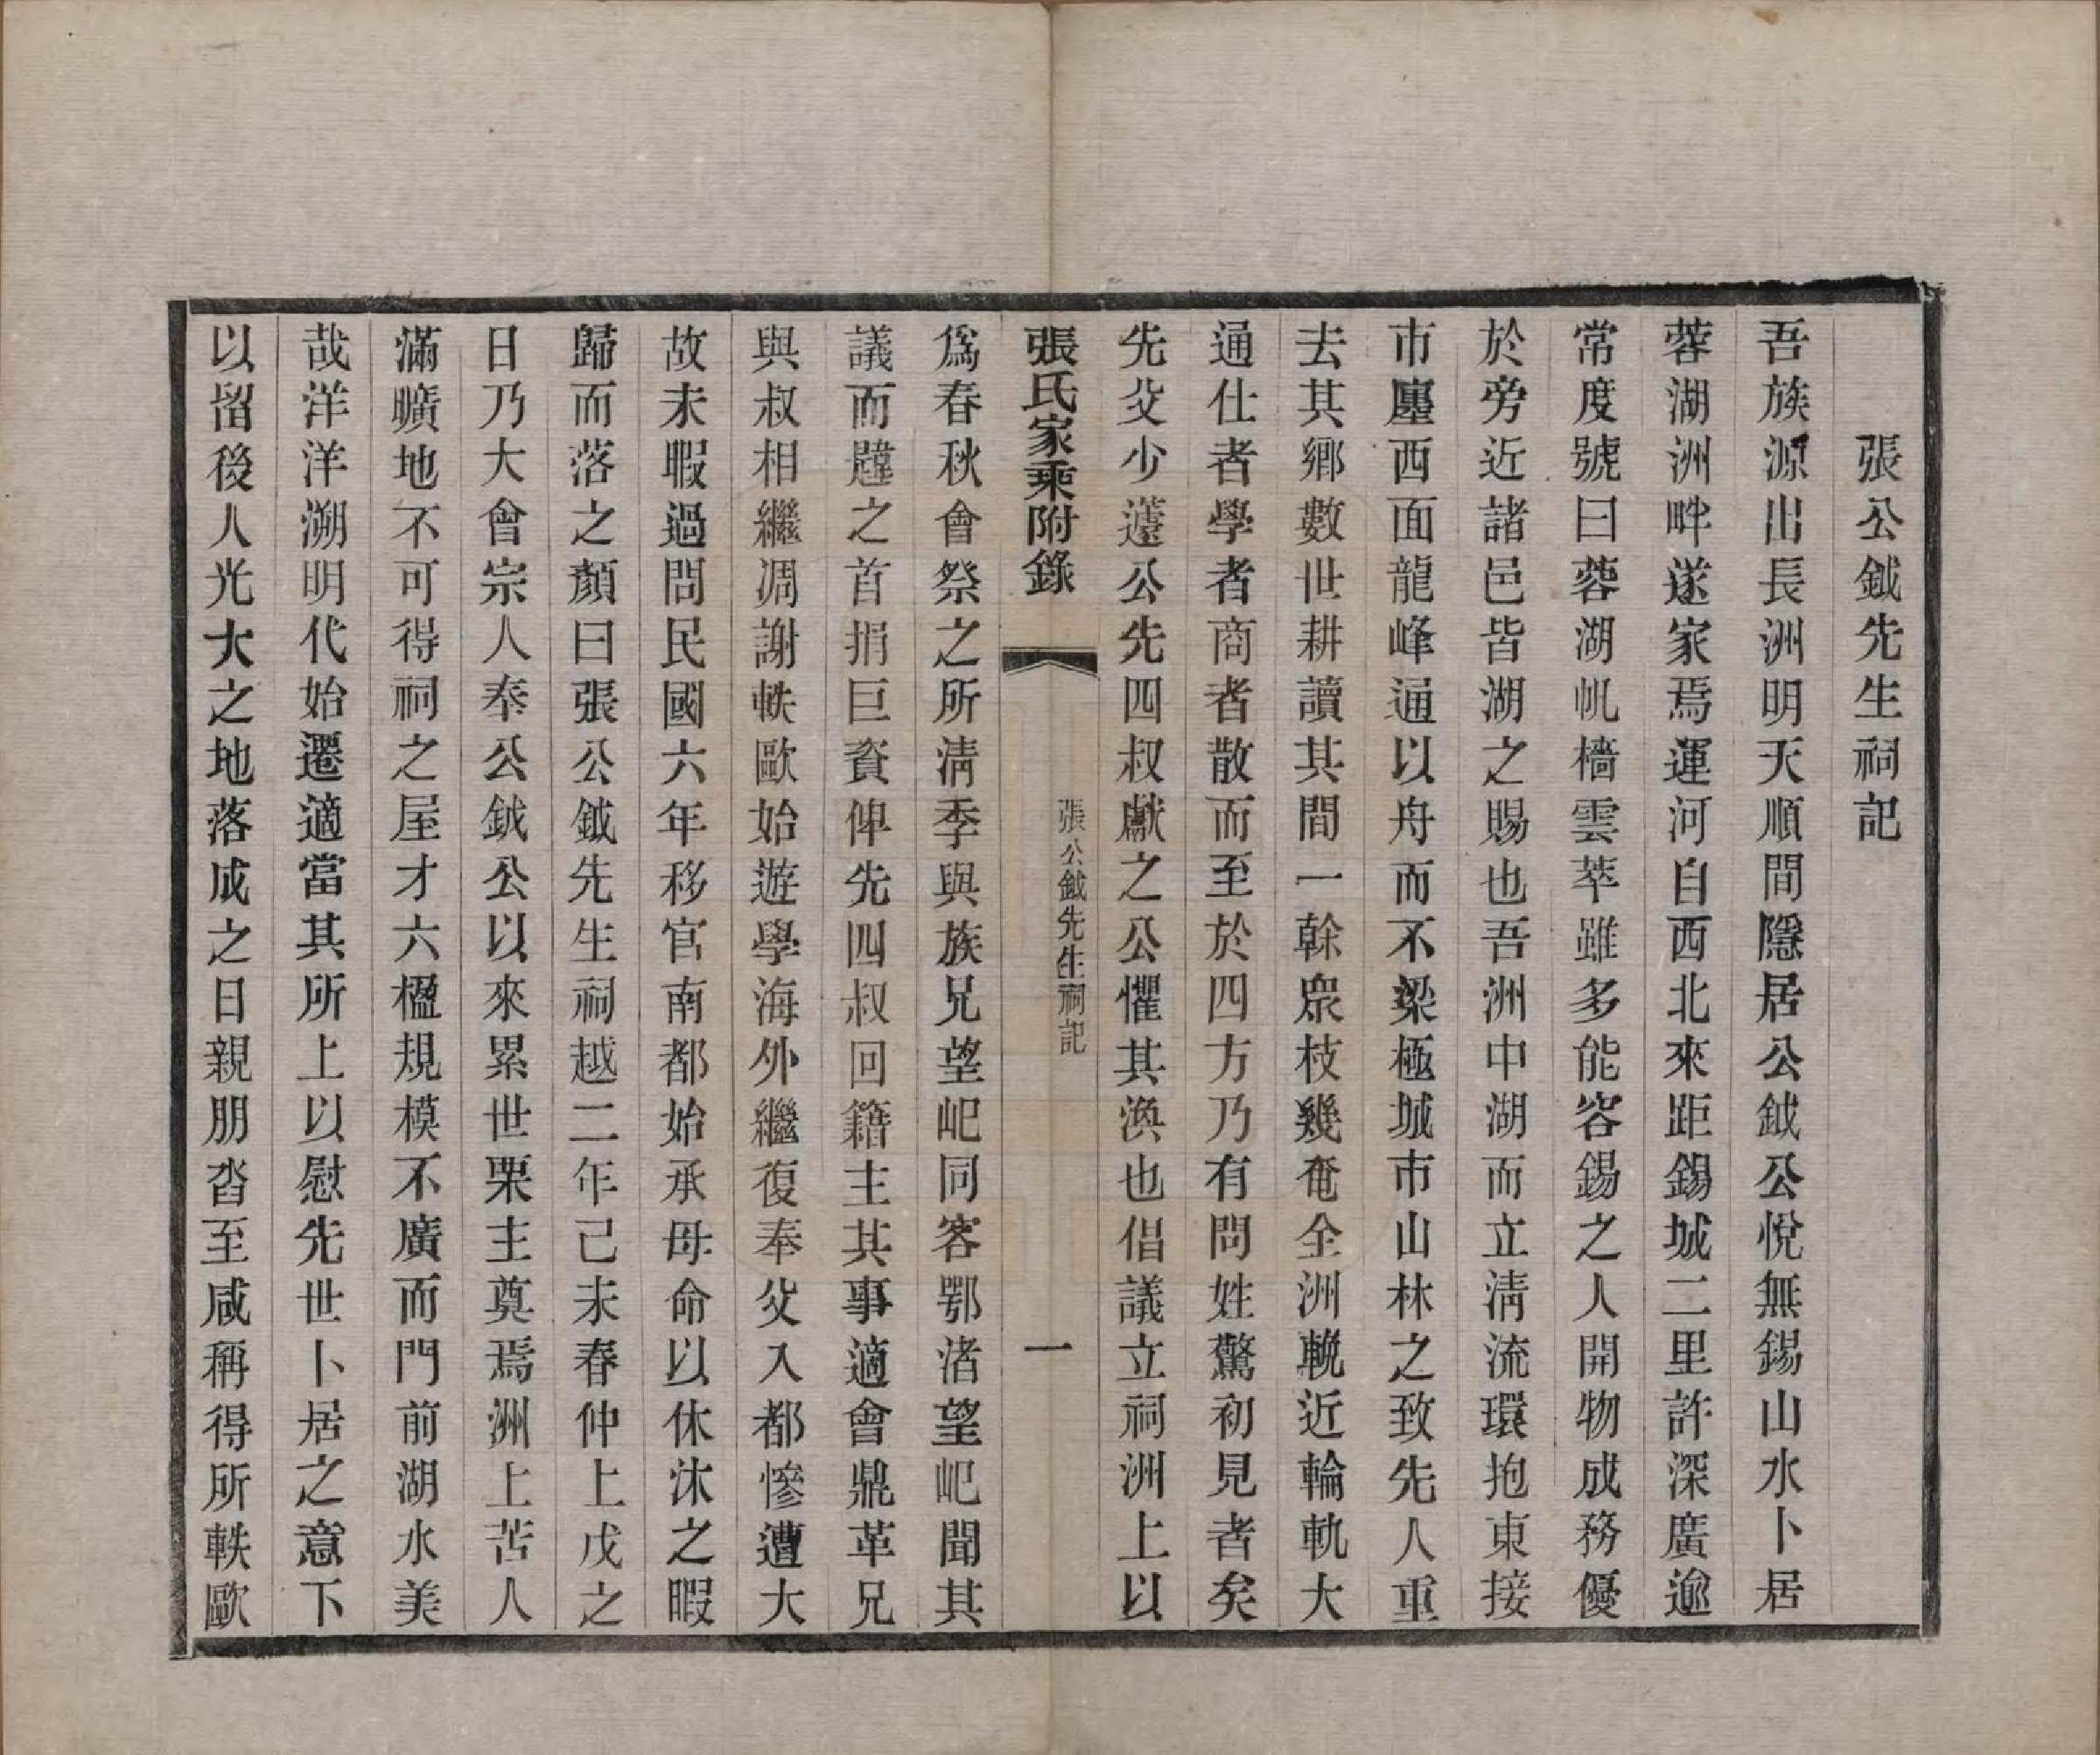 張公鉞先生祠記
吾族源出長洲明天順間隱居公鉞公悅無錫山水卜居
蓉湖洲畔遂家焉運河自西北來距錫城二里許深廣逾
常度號曰蓉湖帆檣雲萃雖多能容錫之人開物成務優
於旁近諸邑皆湖之賜也吾洲中湖而立淸流環抱東接
市廛西面龍峰通以舟而不梁極城市山林之致先人重
去其鄉數世耕讀其間一榦眾枝幾奄全洲輓近輪軌大
通仕者學者商者散而至於四方乃有問姓驚初見者矣
先父少薘公先四叔獻之公懼其渙也倡議立祠洲上以
張氏家乘附錄
張公鉞先生祠記
一
爲春秋會祭之所淸季與族兄望屺同客鄂渚望屺聞其
議而韙之首捐巨資俾先四叔回籍主其事適會鼎革兄
與叔相繼凋謝軼歐始遊學海外繼復奉父入都慘遭大
故未暇過問民國六年移官南都始承母命以休沐之暇
歸而落之顏曰張公鉞先生祠越二年己未春仲上戊之
日乃大會宗人奉公鉞公以來累世栗主奠焉洲上苦人
滿曠地不可得祠之屋才六楹規模不廣而門前湖水美
哉洋洋溯明代始遷適當其所上以慰先世卜居之意下
以留後人光大之地落成之日親朋沓至咸稱得所軼歐